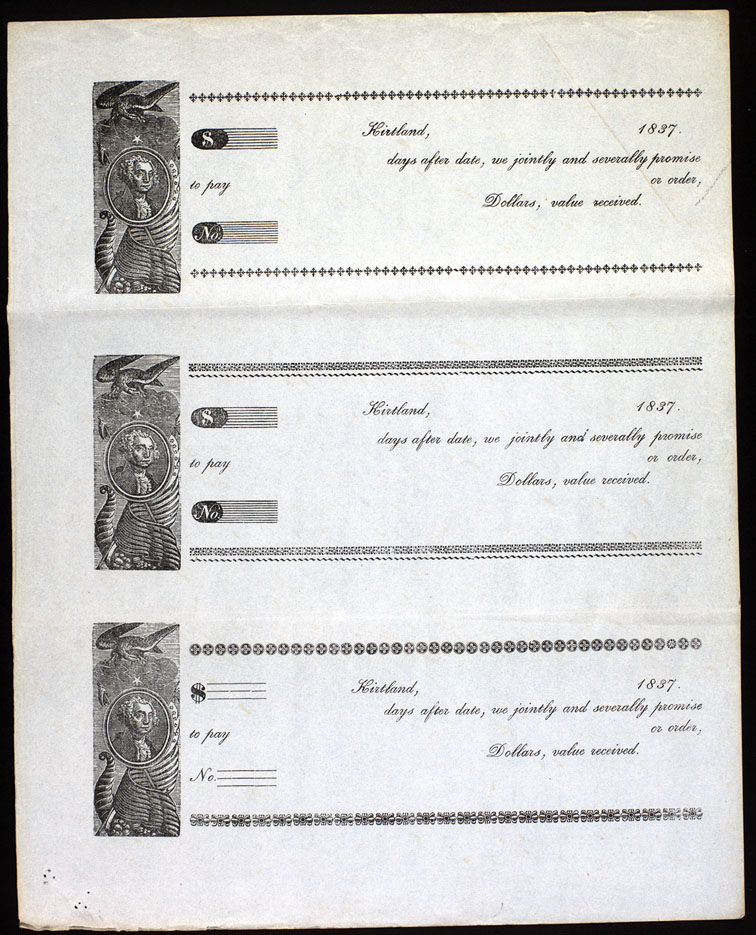 $ Kirtland, 1837.
days after date, we jointly and severally promise
to pay or order,
Dollars, value received.
No.
$ Kirtland, 1837.
days after date, we jointly and severally promise
to pay or order,
Dollars, value received.
No.
$ Kirtland, 1837.
days after date, we jointly and severally promise
to pay or order,
Dollars, value received.
No.